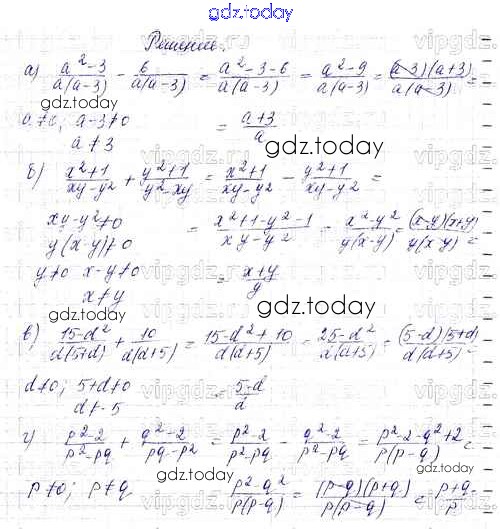 gdz.today
Решение.
а) (a²-3)/(a(a-3)) - 6/(a(a-3)) = (a²-3-6)/(a(a-3)) = (a²-9)/(a(a-3)) = ((a-3)(a+3))/(a(a-3)) =
gdz.today
a≠0; a-3≠0 = (a+3)/a
a≠3
gdz.today
б) (x²+1)/(xy-y²) + (y²+1)/(y²-xy) = (x²+1)/(xy-y²) - (y²+1)/(xy-y²) =
xy-y²≠0 = (x²+1-y²-1)/(xy-y²) = (x²-y²)/(y(x-y)) = ((x-y)(x+y))/(y(x-y)) =
y(x-y)≠0
y≠0 x-y≠0 = (x+y)/y
x≠y
gdz.today
в) (15-d²)/(d(5+d)) + 10/(d(d+5)) = (15-d²+10)/(d(d+5)) = (25-d²)/(d(d+5)) = ((5-d)(5+d))/(d(d+5)) =
d≠0; 5+d≠0 = (5-d)/d
d≠-5
г) (p²-2)/(p²-pq) + (q²-2)/(pq-p²) = (p²-2)/(p²-pq) - (q²-2)/(p²-pq) = (p²-2-q²+2)/(p(p-q)) =
p≠0; p≠q (p²-q²)/(p(p-q)) = ((p-q)(p+q))/(p(p-q)) = (p+q)/p
gdz.today